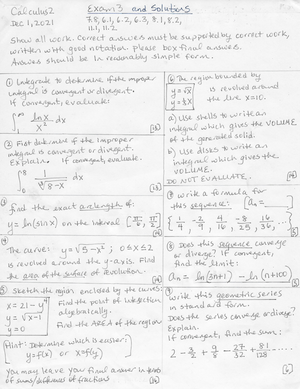 Calculus 2
Dec 1, 2021
Exam 3 and Solutions
7.8, 6.1, 6.2, 6.3, 8.1, 8.2,
11.1, 11.2
Show all work. Correct answers must be supported by correct work,
written with good notation. Please box final answers.
Answers should be in reasonably simple form.
① Integrate to determine if the improper
integral is convergent or divergent.
If convergent, evaluate:
∫ ln x / x dx
② First determine if the improper
integral is convergent or divergent.
Explain. If convergent, evaluate.
∫₀⁸ 1/∛(8-x) dx
③ Find the exact arclength of:
y = ln(sin x) on the interval [π/6, π/2]
④ The curve: y = 5-x²; 0≤x≤2
is revolved around the y-axis. Find
the area of the surface of revolution.
⑤ Sketch the region enclosed by the curves:
x = 21-y
y = √(x-1)
y = 0
Find the point of intersection
algebraically.
Find the AREA of the region
Hint: Determine which is easier:
y=f(x) or x=f(y)
You may leave your final answer in terms
of sums/differences of fractions
⑥ The region bounded by
y = √x
is revolved around
the line x=10.
a) Use shells to write an
integral which gives the VOLUME
of the generated solid.
b) Use disks to write an
integral which gives the
VOLUME.
DO NOT EVALUATE.
⑦ Write a formula for
this sequence: {an = ___}
{1/1, -2/4, 4/16, -8/25, 16/36, ...}
⑧ Does this sequence converge
or diverge? If convergent,
find the limit:
an = ln(5n+1) - ln(n+100)
⑨ Write this geometric series
in standard form.
Does this series converge or diverge?
Explain.
If convergent, find the sum:
2 - 3/2 + 9/8 - 27/32 + 81/128 ...